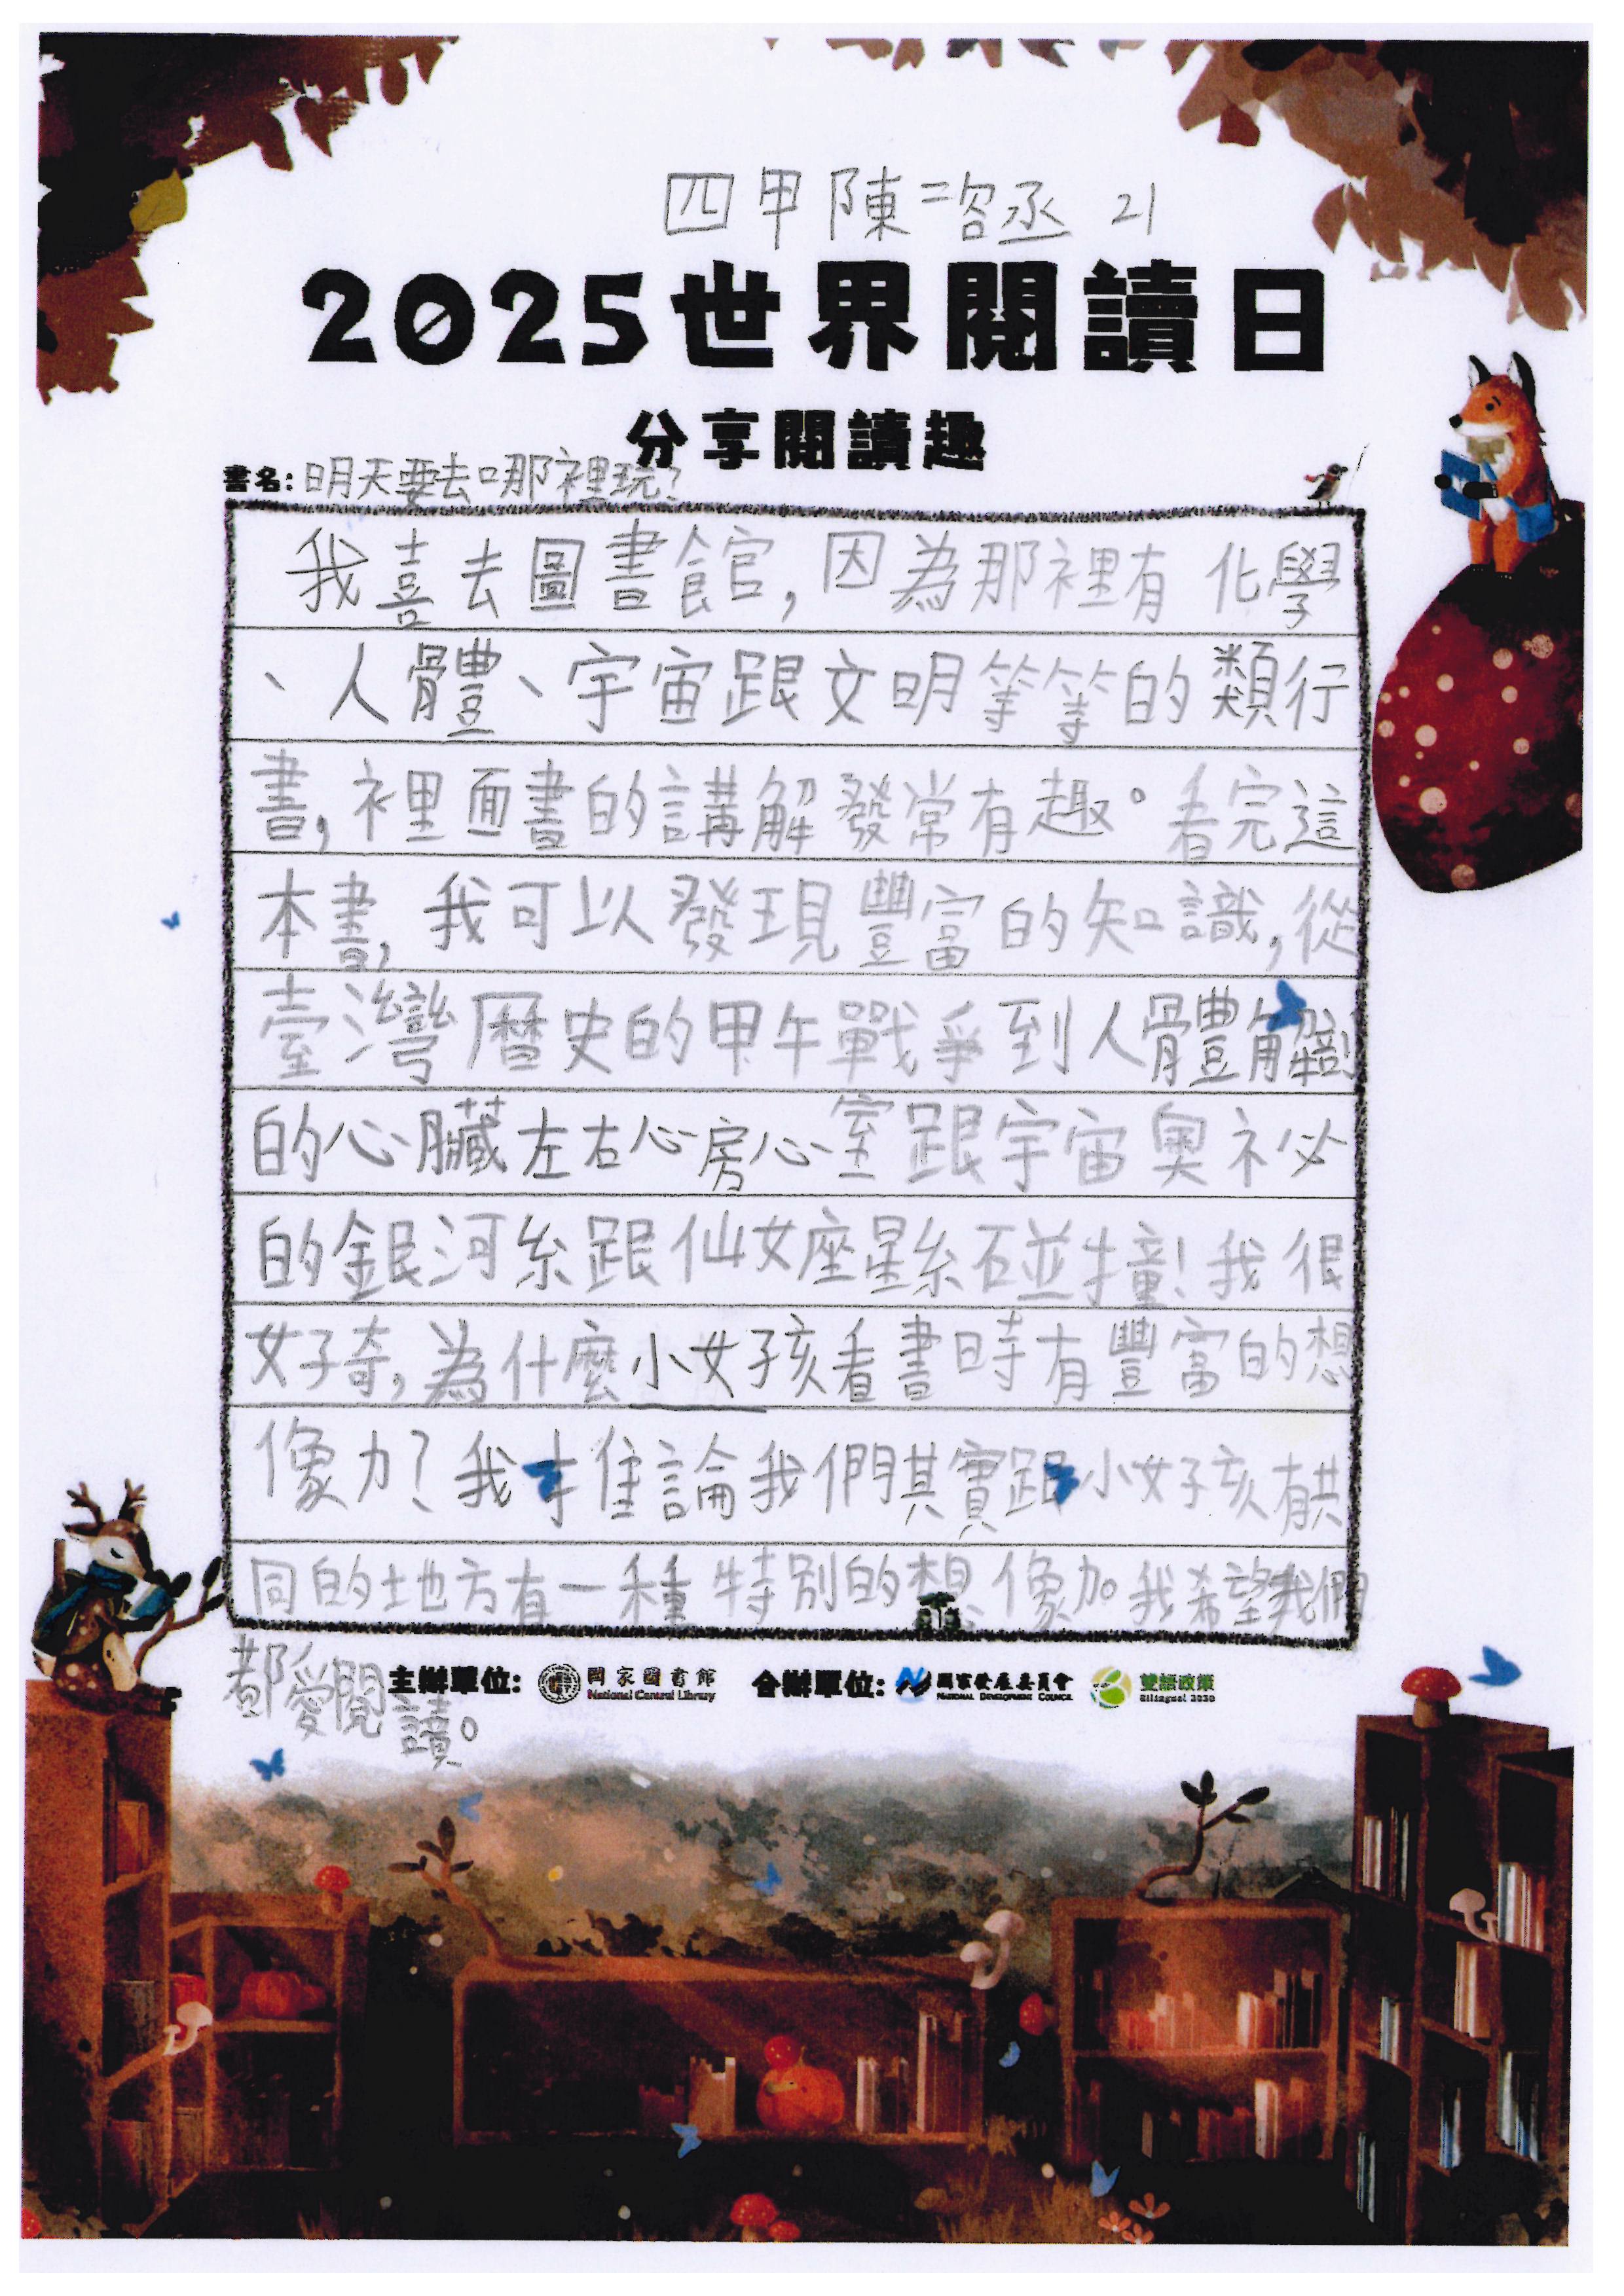 四甲陳諮丞 21
2025世界閱讀日
分享閱讀趣
書名:明天要去哪裡玩?
我喜去圖書館,因為那裡有化學
、人體、宇宙跟文明等等的類行
書,裡面書的講解發常有趣。看完這
本書,我可以發現豐富的知識,從
臺灣曆史的甲午戰爭到人體解剖
的心臟左右心房心室跟宇宙奧祕
的銀河系跟仙女座星系碰撞!我很
好奇,為什麼小女孩看書時有豐富的想
像力?我推論我們其實跟小女孩有共
同的地方有一種特別的想像力。我希望我們
都愛閱讀。
主辦單位: 國家圖書館 National Central Library 合辦單位: 國家發展委員會 NATIONAL DEVELOPMENT COUNCIL 雙語政策 Bilingual 2030